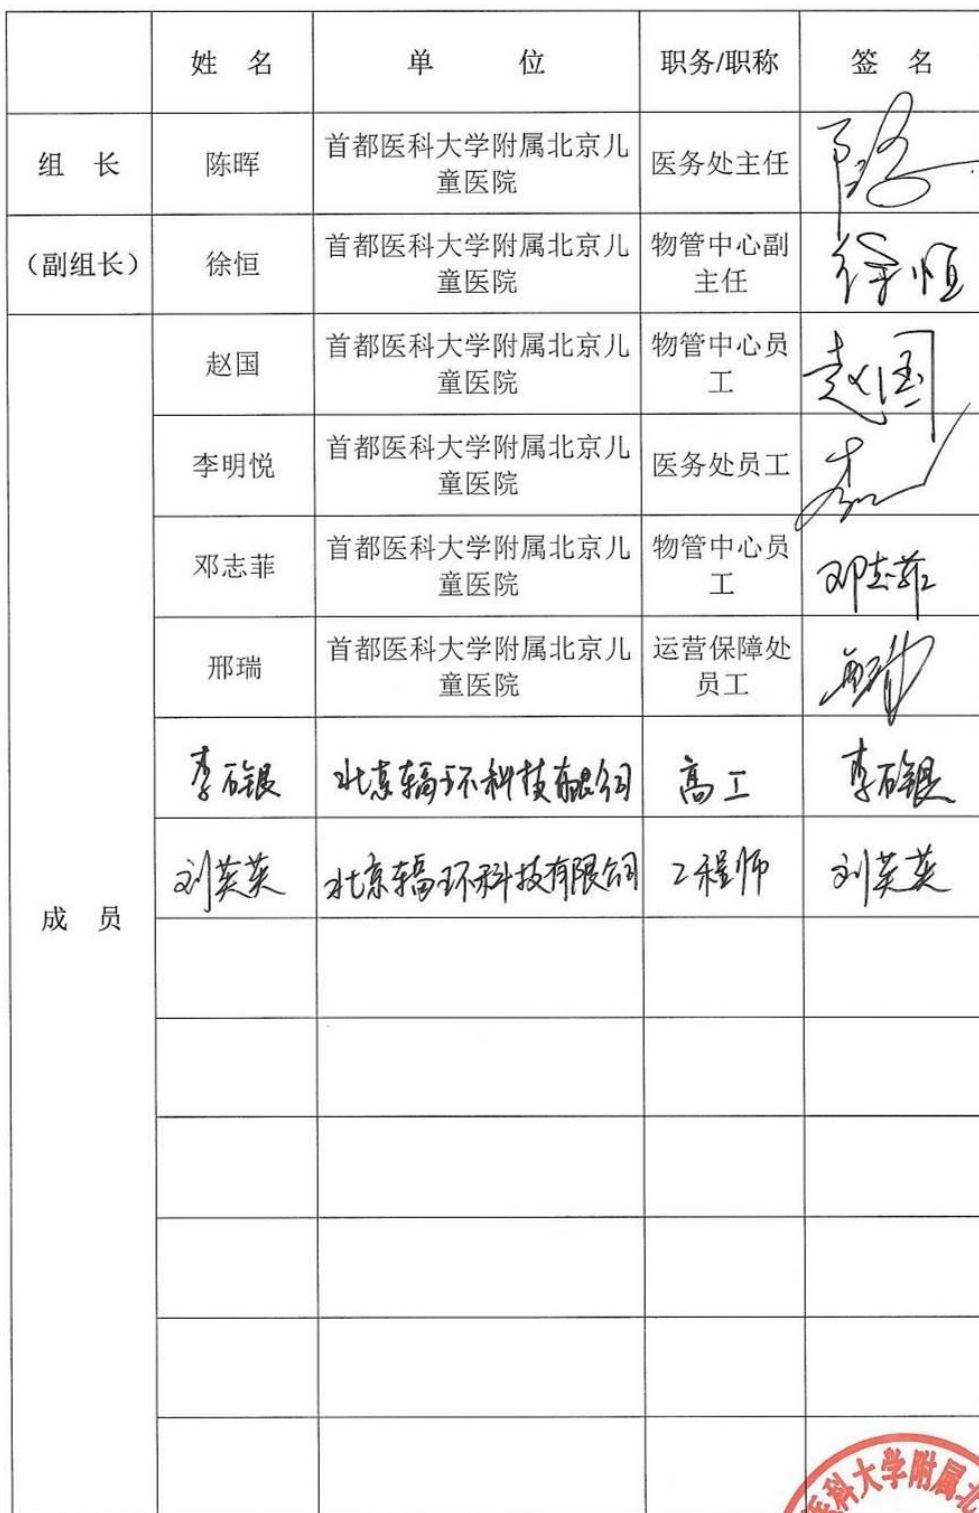 姓 名 单 位 职务/职称 签 名
组 长 陈晖 首都医科大学附属北京儿童医院 医务处主任
（副组长） 徐恒 首都医科大学附属北京儿童医院 物管中心副主任 徐恒
成 员 赵国 首都医科大学附属北京儿童医院 物管中心员工 赵国
李明悦 首都医科大学附属北京儿童医院 医务处员工
邓志菲 首都医科大学附属北京儿童医院 物管中心员工 邓志菲
邢瑞 首都医科大学附属北京儿童医院 运营保障处员工
李 北京辐环科技有限公司 高工 李
刘英英 北京辐环科技有限公司 工程师 刘英英
医科大学附属北